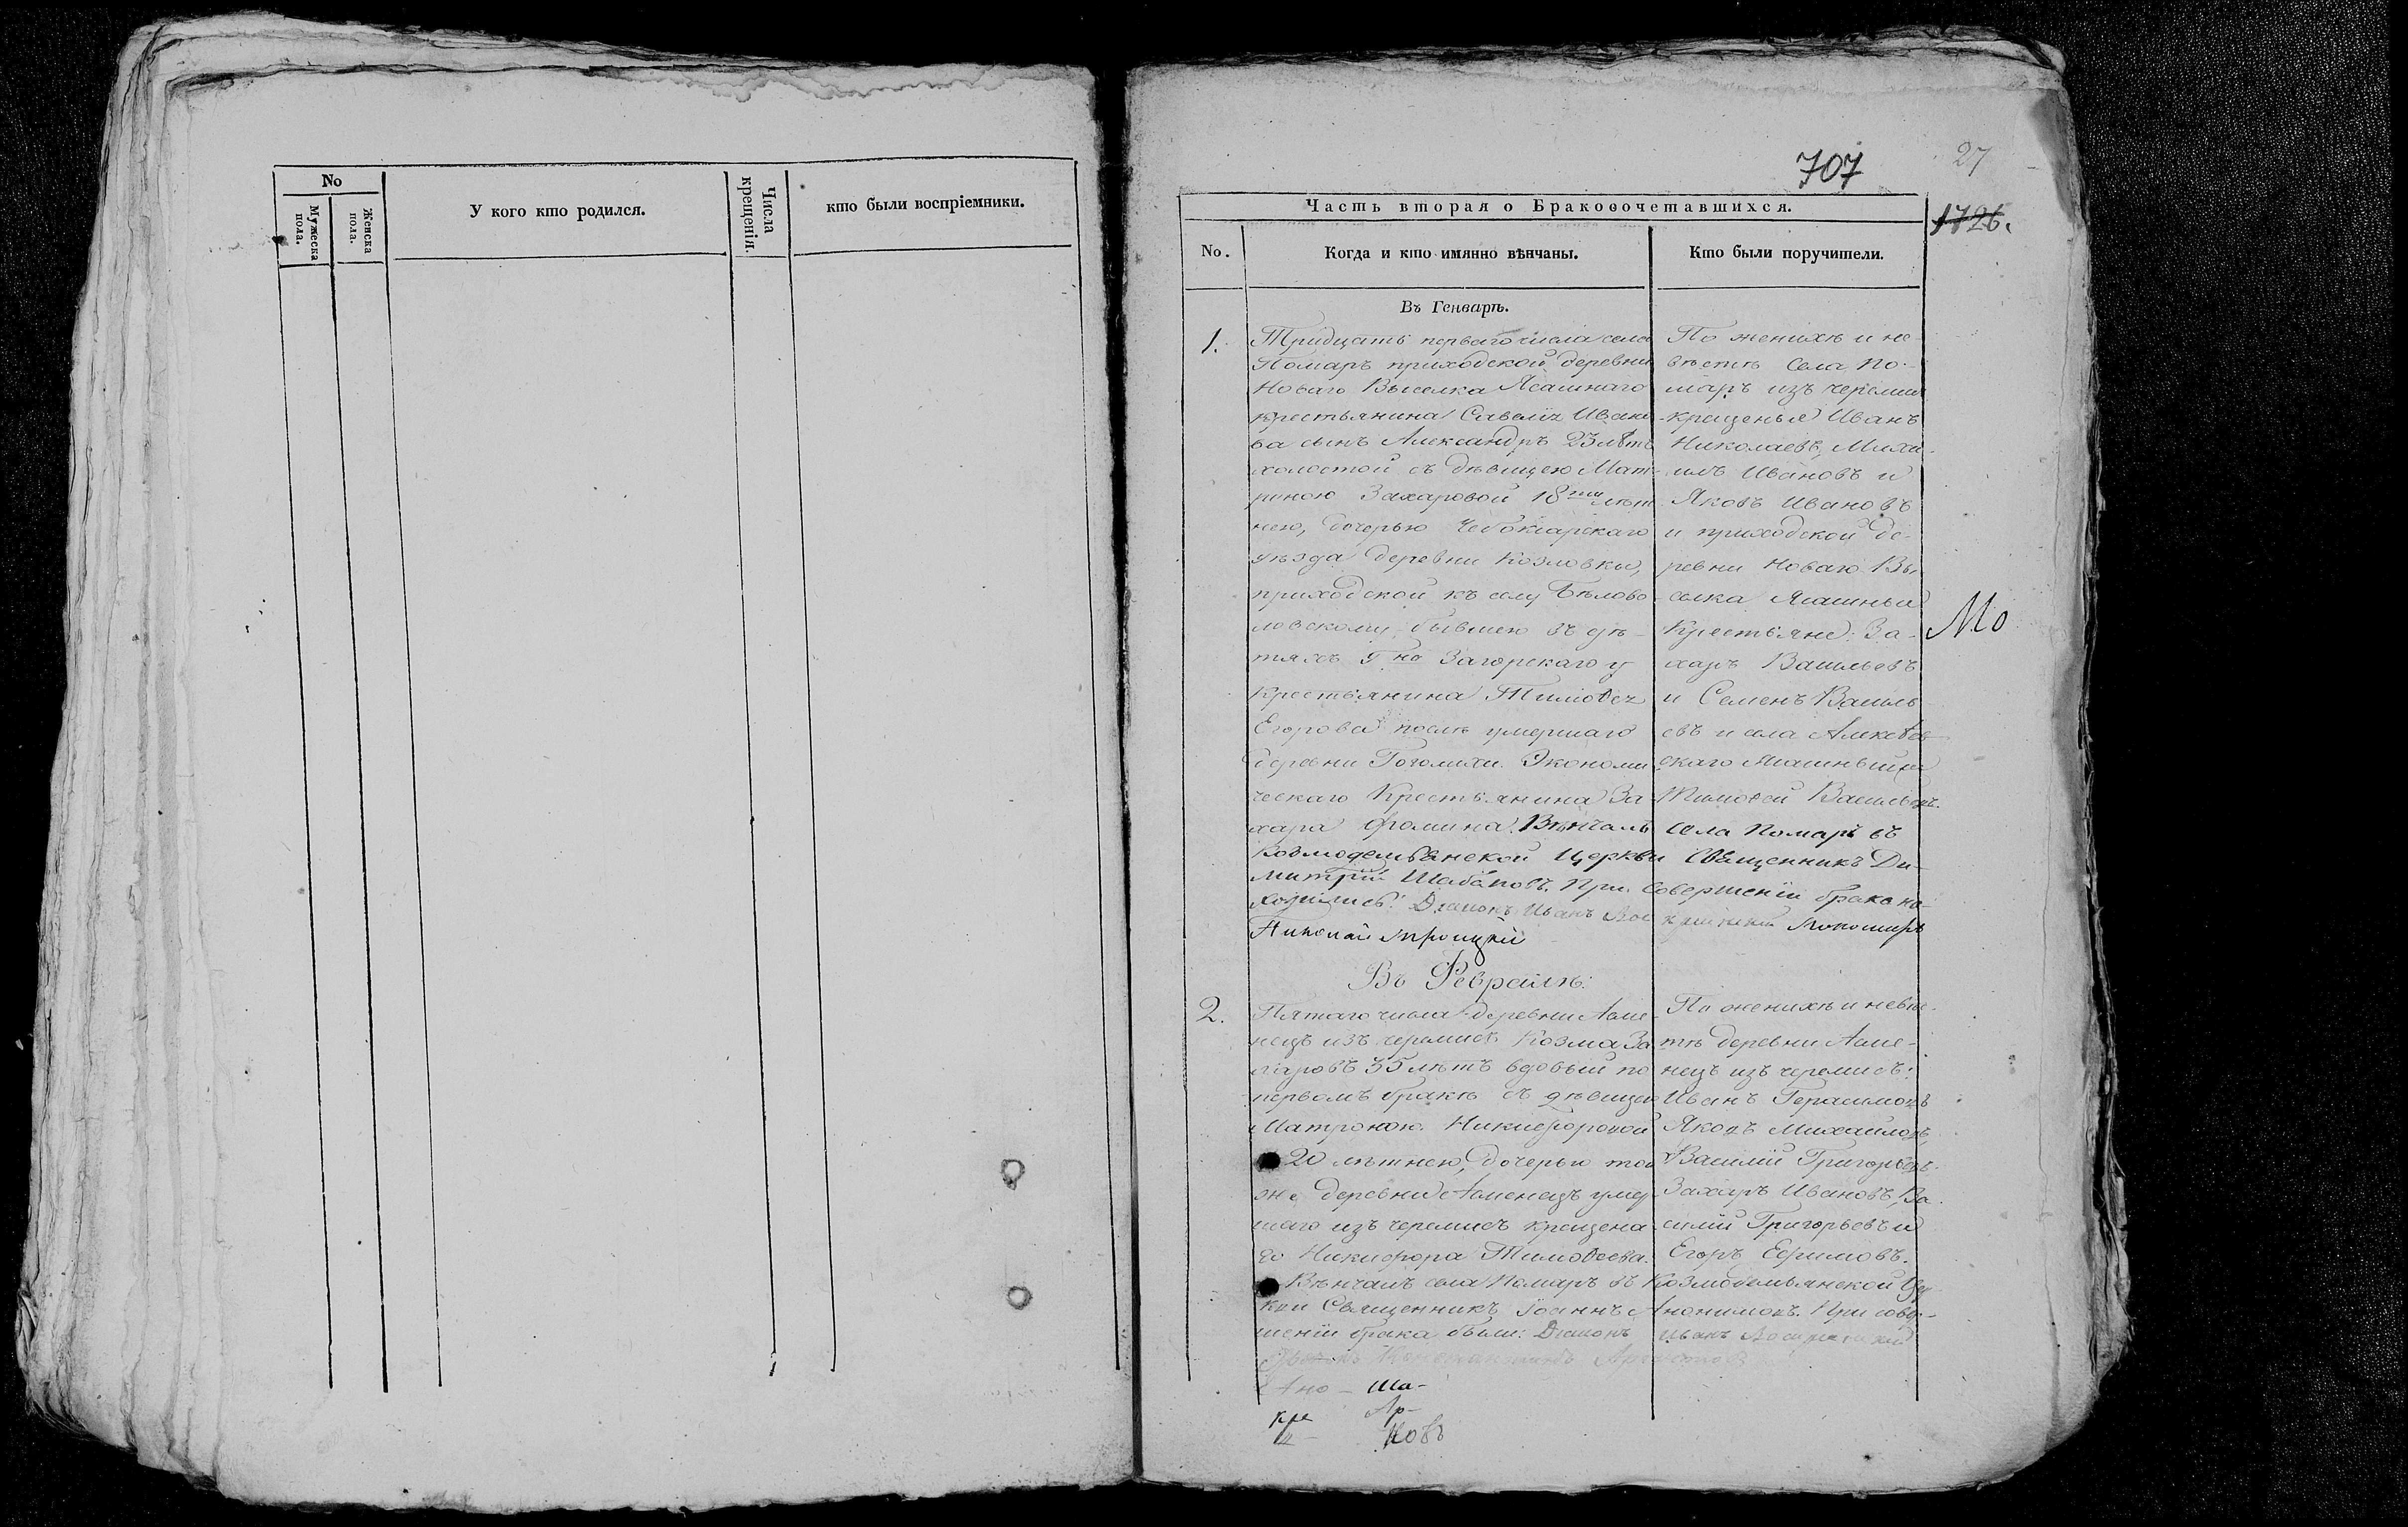 No
Мужеска пола.
Женска пола.
У кого кто родился.
Числа крещенія.
кто были воспріемники.
707
27
1726.
Часть вторая о Бракосочетавшихся.
No.
Когда и кто имянно вѣнчаны.
Кто были поручители.
Въ Генварѣ.
1.
Тридцать перваго числа села
Помаръ приходской деревни
Новаго Выселка Ясашнаго
крестьянина Савелія Ивано
ва сынъ Александръ 23 лѣтъ
холостой съ дѣвицею Мат-
роною Захаровой 18ти лѣт
нею, дочерью Чебоксарскаго
уѣзда деревни Козловки,
приходской къ селу Бѣлово
ловскому, бывшею въ дѣ-
тяхъ Гно Загорскаго у
Крестьянина Тимоѳея
Егорова послѣ умершаго
деревни Гоголихи Экономи
ческаго Крестьянина За
хара Фомина. Вѣнчалъ села Помаръ въ
Козмодемьянской Церкви Священникъ Ди-
митрій Шабановъ. При совершеніи брака на-
ходились: Діаконъ Иванъ Пономарь
Николай Троицкій
По женихѣ и не
вѣстѣ Села По-
маръ изъ черемис
крещеные Иванъ
Николаевъ, Миха-
илъ Ивановъ и
Яковъ Ивановъ
и приходской де-
ревни Новаго Вы
селка Ясашные
Крестьяне: За-
харъ Васильевъ
и Семенъ Василь
евъ и села Алексѣев
скаго Ясашный
Тимоѳей Васильевъ.
Мо
Въ Февралѣ:
2.
Пятаго числа деревни Аме-
нецъ изъ черемисъ Козма За
харовъ 35 лѣтъ вдовый по
первомъ бракѣ съ дѣвицею
Матроною Никифоровой
20 лѣтнею, дочерью той
же деревни Аменецъ умер
шаго изъ черемисъ крещена
го Никифора Тимоѳеева.
Вѣнчалъ села Помаръ въ Козмодемьянской Цер
кви Священникъ Іоаннъ Анонимовъ. При совер-
шеніи брака были: Діаконъ Иванъ
По женихѣ и невѣс
тѣ деревни Аме-
нецъ изъ черемисъ:
Иванъ Герасимовъ
Яковъ Михайловъ,
Василій Григорьевъ.
Захаръ Ивановъ, Ва
силій Григорьевъ и
Егоръ Ефимовъ.
Ано- Ша-
кре Ар-
новъ